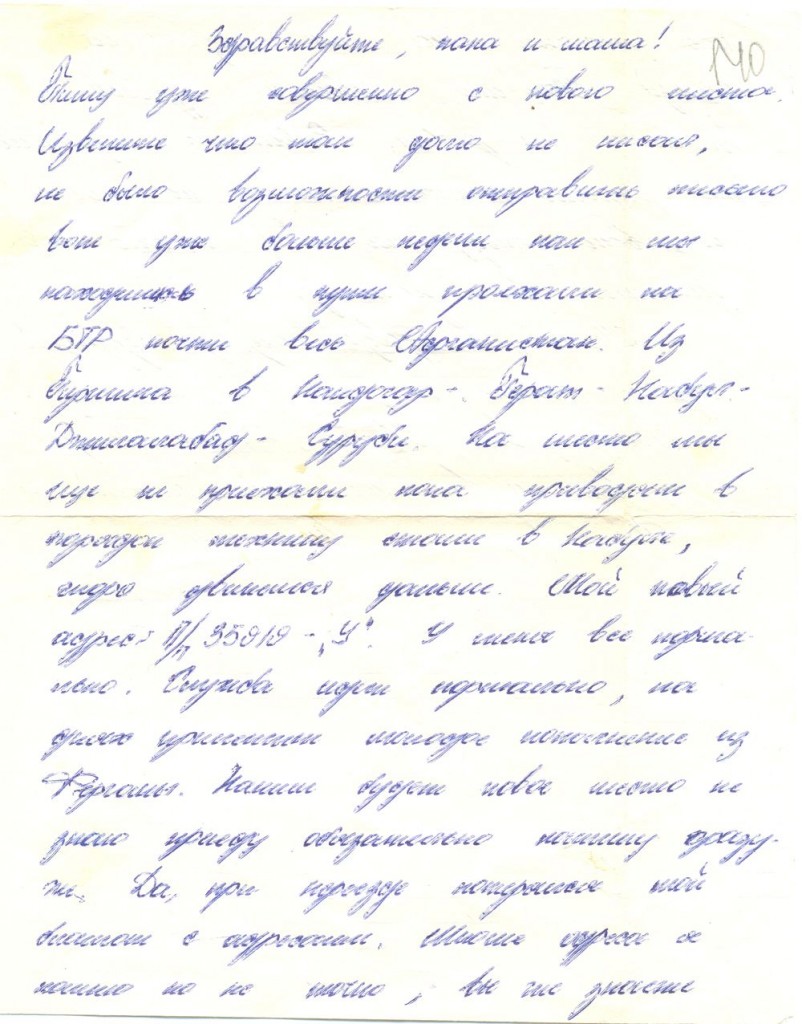 Здравствуйте, папа и мама!
140
Пишу уже совершенно с нового места.
Извените что так долго не писал,
не было возможности отправить письмо
вот уже больше недели как мы
находимся в пути проехали на
БТР почти весь Афганистан. Из
Гиришка в Кандагар - Герат - Кабул -
Джилалабад - Суруби. На место мы
еще не приехали пока приводим в
порядок технику стоим в Кабуле,
скоро двинемся дальше. Мой новый
адрес: П/п 35919 - "У". У меня все норма-
льно. Служба идет нормально, на
днях приметили молодое пополнение из
Ферганы. Каким будет новое место не
знаю приеду обязательно напишу сразу-
же. Да, при переезде потерялся мой
блакнот с адресами. Многие адреса я
помню но не точно, вы же знаете